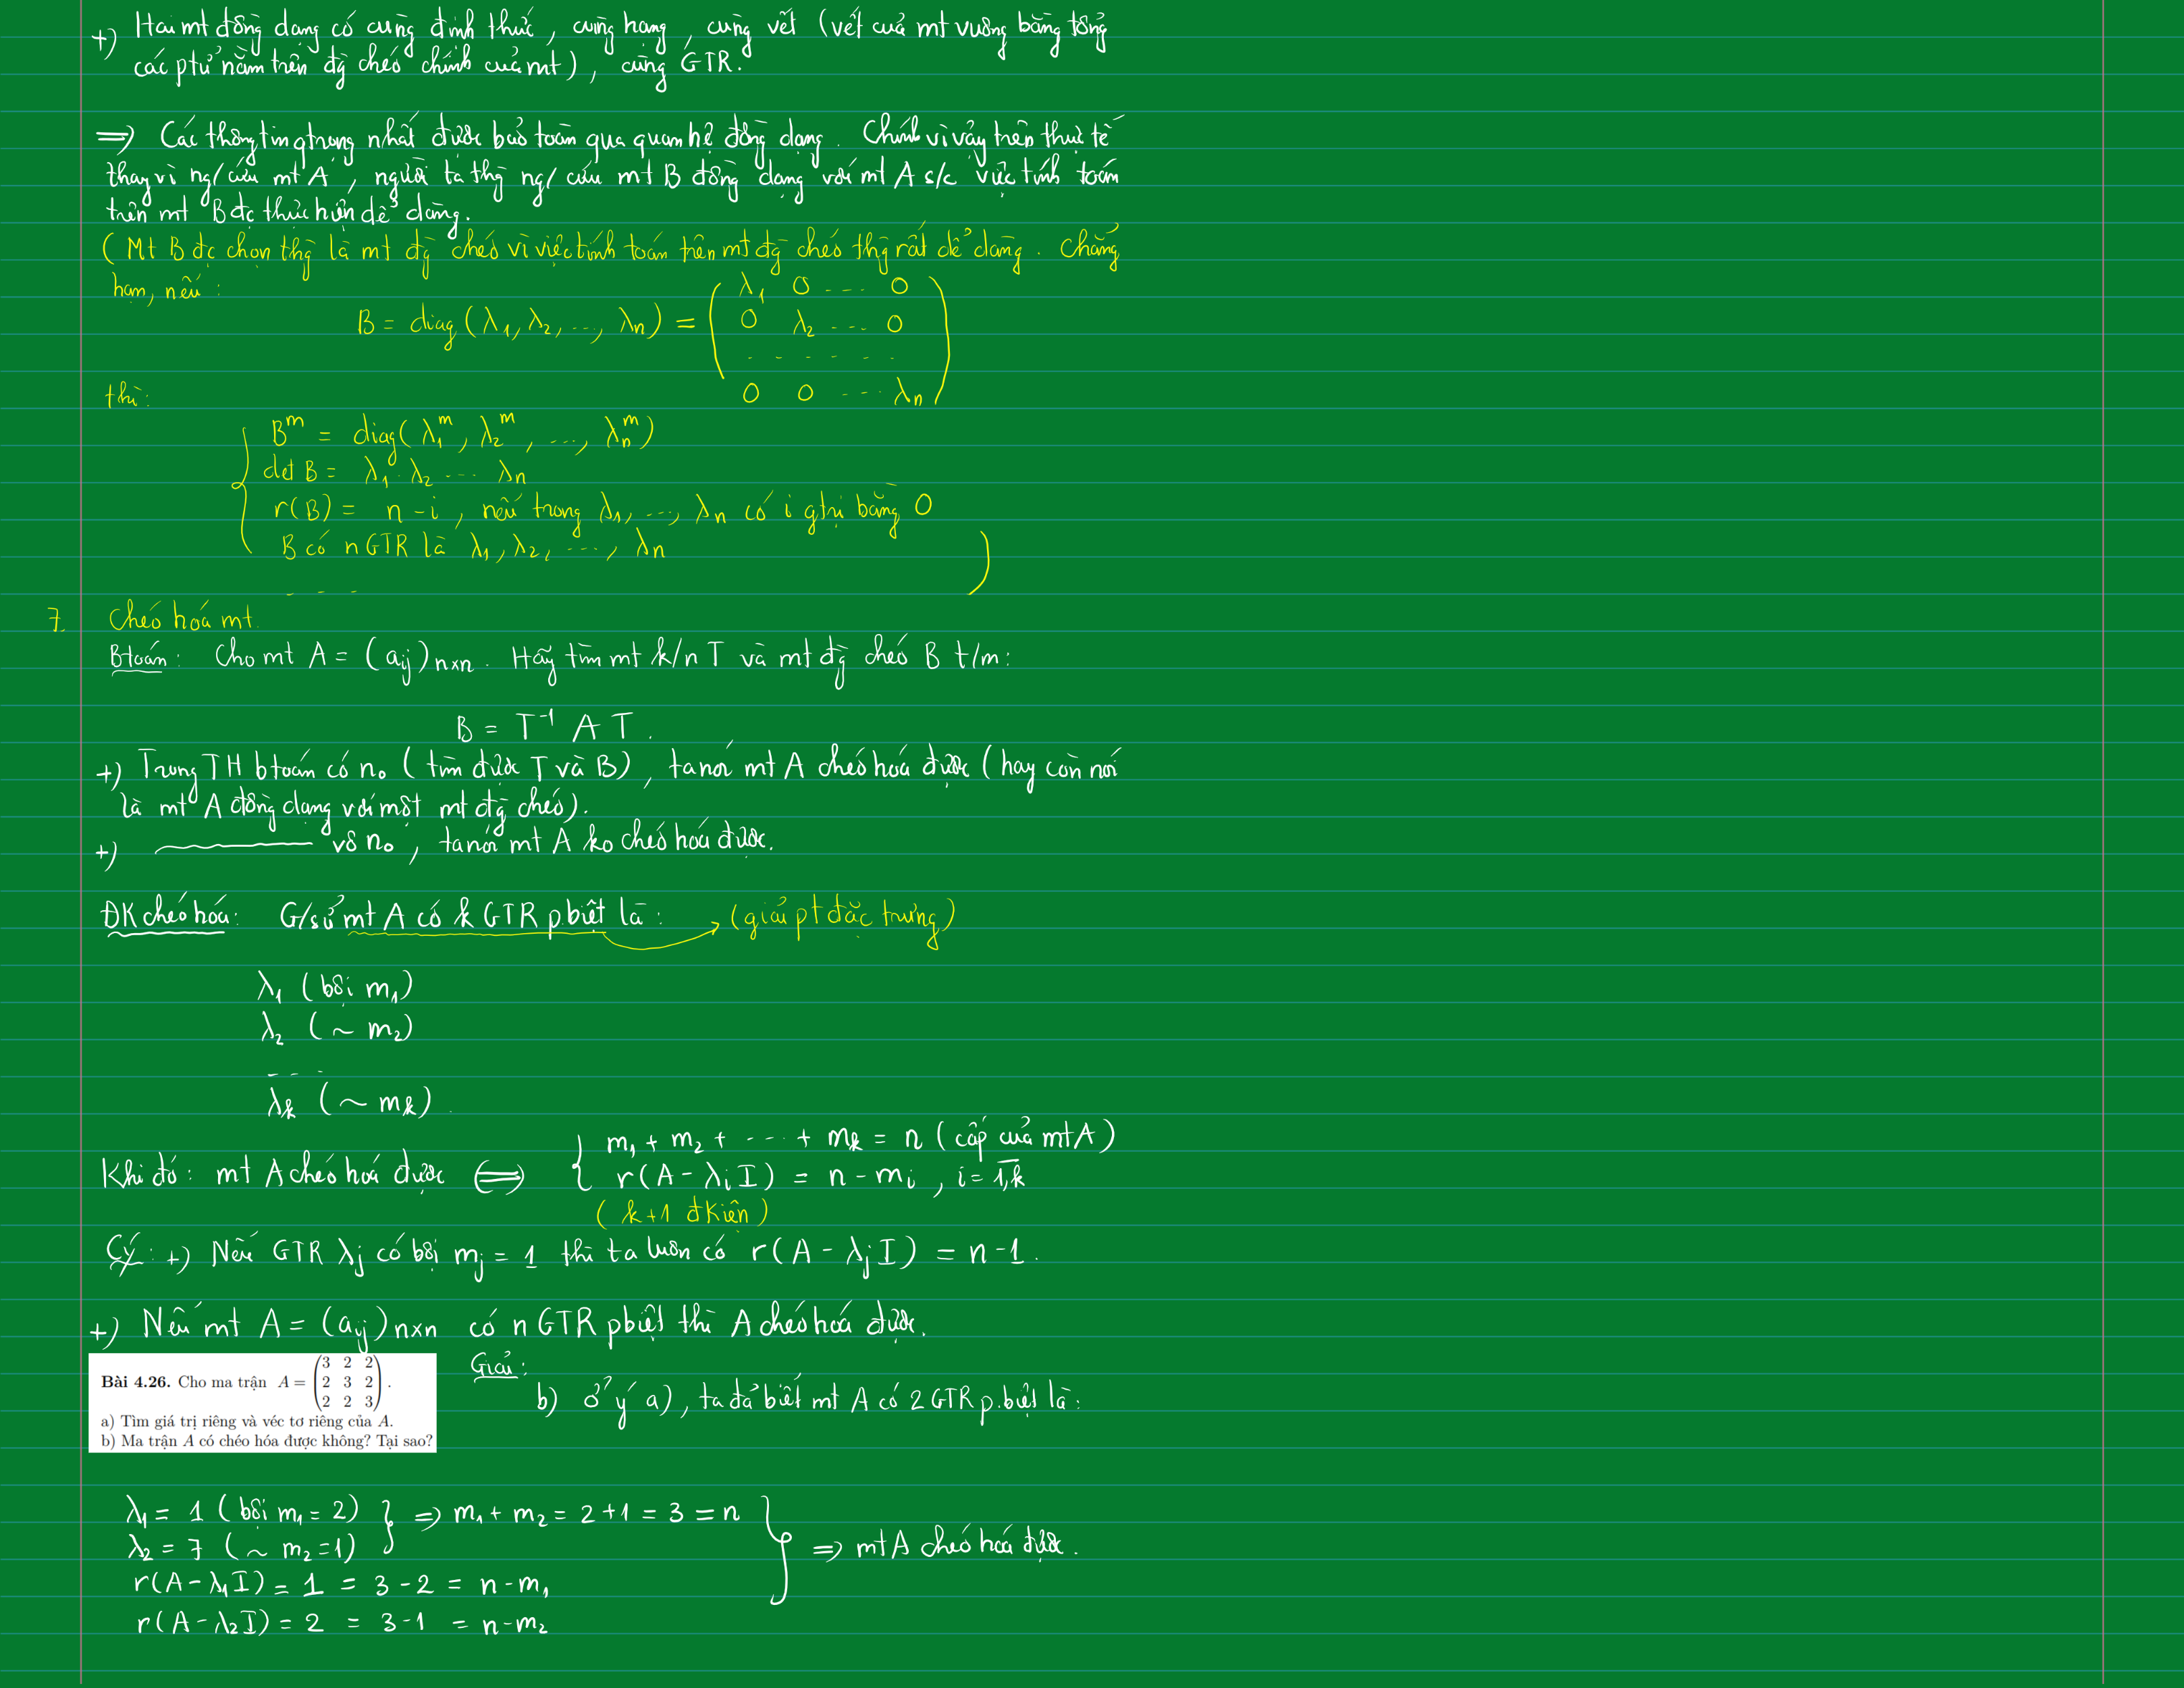 +) Hai mt đồng dạng có cùng định thức, cùng hạng, cùng vết (vết của mt vuông bằng tổng
các ptử nằm trên đg chéo chính của mt), cùng GTR.
=> Các thông tin qtrọng nhất được bảo toàn qua quan hệ đồng dạng. Chính vì vậy trên thực tế
thay vì ng/cứu mt A, người ta thg ng/cứu mt B đồng dạng với mt A s/c việc tính toán
trên mt B đc thực hiện dễ dàng.
(Mt B đc chọn thg là mt đg chéo vì việc tính toán trên mt đg chéo thg rất dễ dàng. Chẳng
hạn, nếu:
B = diag(λ₁, λ₂, ..., λn) = ( λ₁ 0 ... 0
0 λ₂ ... 0
. . . . . .
0 0 ... λn )
thì:
{ B^m = diag(λ₁^m, λ₂^m, ..., λn^m)
det B = λ₁.λ₂ ... λn
r(B) = n - i, nếu trong λ₁, ..., λn có i gtrị bằng 0
B có n GTR là λ₁, λ₂, ..., λn
- - - )
7. Chéo hoá mt.
Btoán: Cho mt A = (aij)n×n. Hãy tìm mt k/n T và mt đg chéo B t/m:
B = T⁻¹ A T.
+) Trong TH btoán có n₀ (tìm được T và B), ta nói mt A chéo hoá được (hay còn nói
là mt A đồng dạng với một mt đg chéo).
+) ~ vô n₀, ta nói mt A ko chéo hoá được.
ĐK chéo hóa: G/sử mt A có k GTR pbiệt là: → (giải pt đặc trưng)
λ₁ (bội m₁)
λ₂ (~ m₂)
- - -
λk (~ mk).
Khi đó: mt A chéo hoá được <=> { m₁ + m₂ + ... + mk = n (cấp của mt A)
r(A - λiI) = n - mi, i = 1,k
(k+1 đkiện)
CY: +) Nếu GTR λj có bội mj = 1 thì ta luôn có r(A - λjI) = n - 1.
+) Nếu mt A = (aij)n×n có n GTR pbiệt thì A chéo hoá được.
Bài 4.26. Cho ma trận A = ( 3 2 2
2 3 2
2 2 3 ).
a) Tìm giá trị riêng và véc tơ riêng của A.
b) Ma trận A có chéo hóa được không? Tại sao?
Giải:
b) ở ý a), ta đã biết mt A có 2 GTR p.biệt là:
λ₁ = 1 (bội m₁ = 2)
λ₂ = 7 (~ m₂ = 1) } => m₁ + m₂ = 2 + 1 = 3 = n
r(A - λ₁I) = 1 = 3 - 2 = n - m₁
r(A - λ₂I) = 2 = 3 - 1 = n - m₂
} => mt A chéo hoá được.